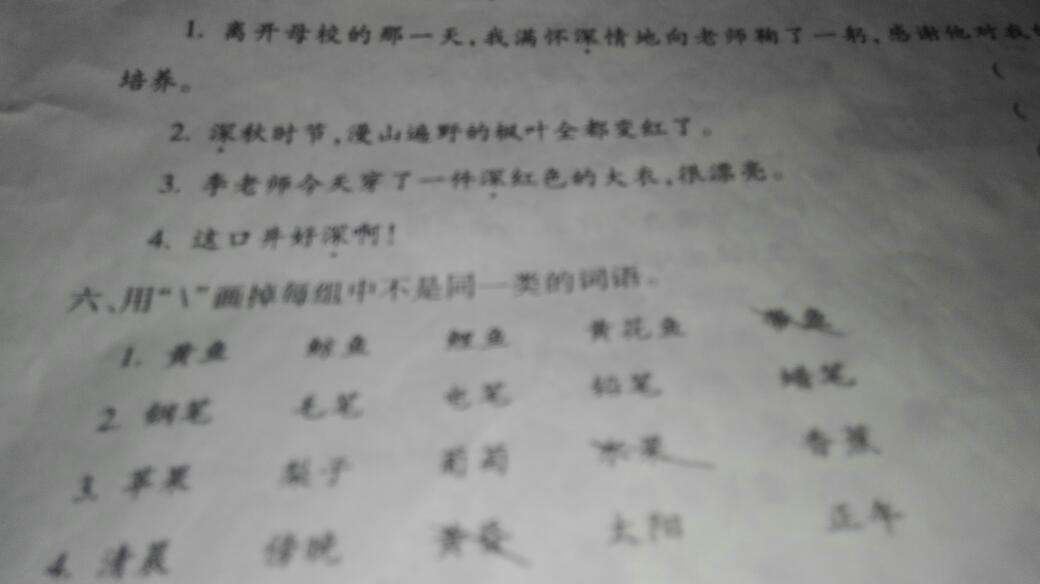 1. 离开母校的那一天,我满怀深情地向老师鞠了一躬,感谢他对我
培养。 (
(
2. 深秋时节,漫山遍野的枫叶全都变红了。
3. 李老师今天穿了一件深红色的大衣,很漂亮。
4. 这口井好深啊!
六、用“\”画掉每组中不是同一类的词语。
1. 黄鱼 鲸鱼 鲤鱼 黄花鱼 带鱼
2. 钢笔 毛笔 电笔 铅笔 蜡笔
3. 苹果 梨子 葡萄 水果 香蕉
4. 清晨 傍晚 黄昏 太阳 正午